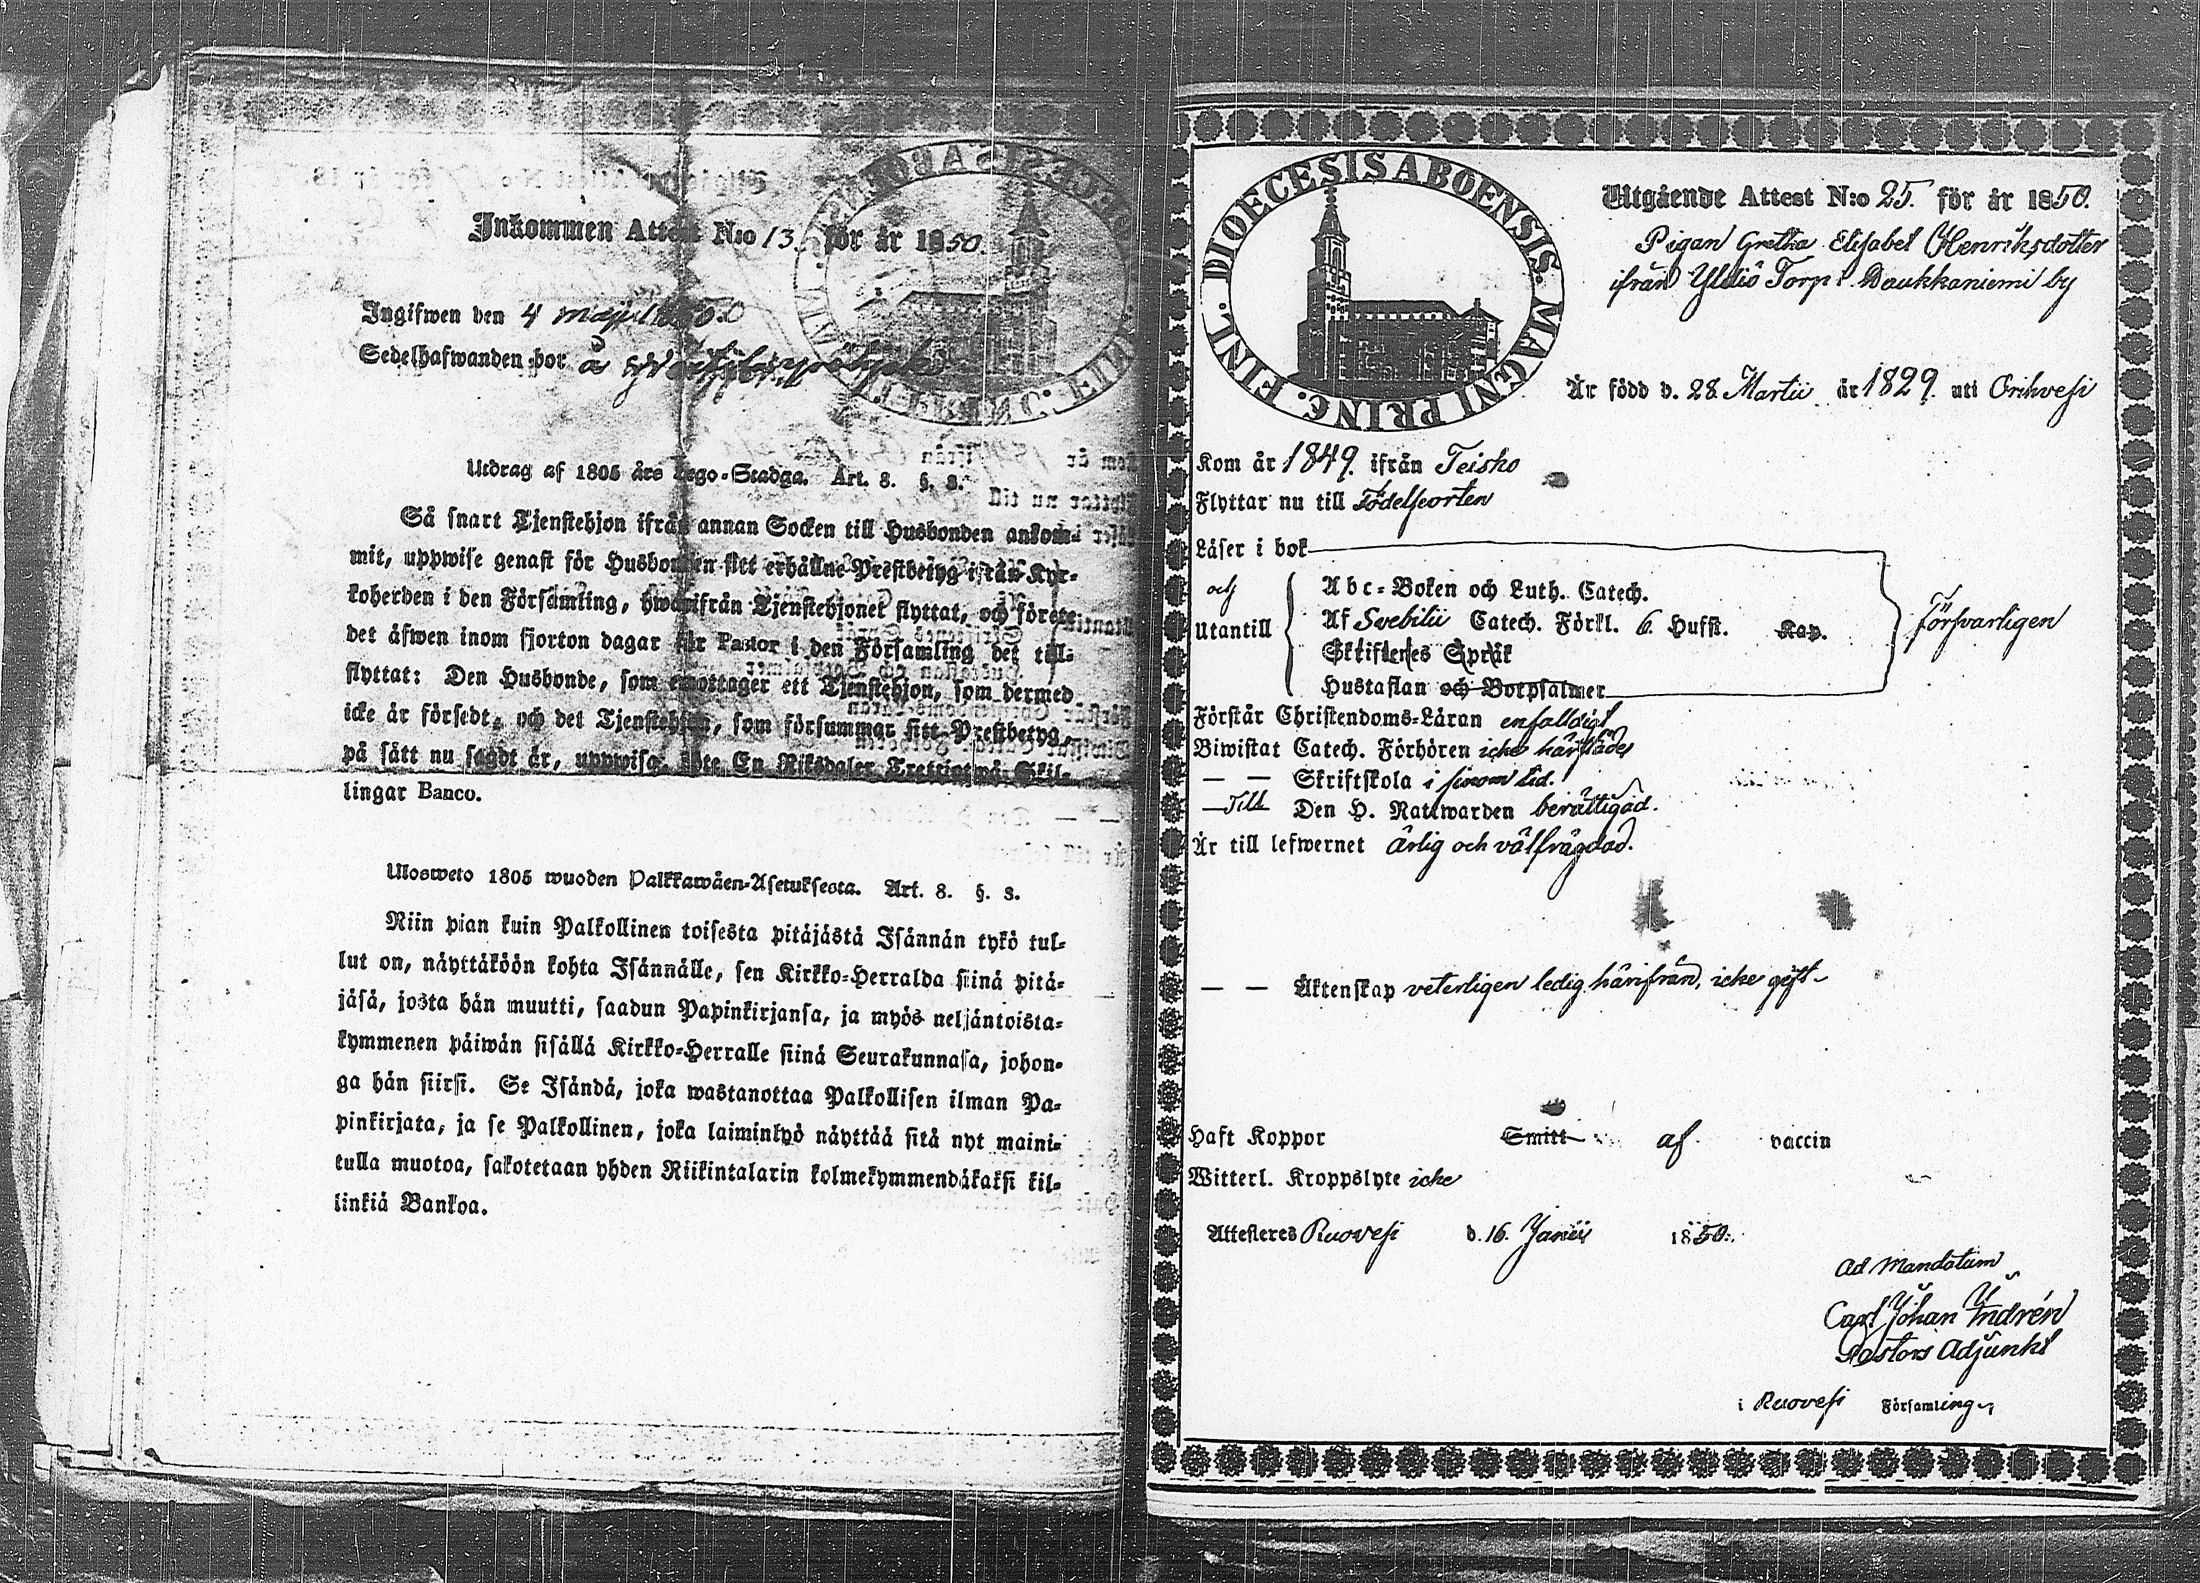 Inkommen Attest N:o 13. för år 1850.
Ingifwen den 4 maji 1850
Sedelhafwanden bor å
Utdrag af 1805 års Lego-Stadga. Art. 8. §. 3.
Så snart Tjenstehjon ifrån annan Socken till Husbonden ankom-
mit, uppwise genast för Husbonden sitt erhållne Prestbetyg ifrån Kyr-
koherden i den Församling, hwarifrån Tjenstehjonet flyttat, och förete
det äfwen inom fjorton dagar för Pastor i den Församling det till-
flyttat: Den Husbonde, som emottager ett Tjenstehjon, som dermed
icke är försedt, och det Tjenstehjon, som försummar sitt Prestbetyg,
på sätt nu sagdt är, uppwisa, böte En Riksdaler Trettiotwå Skil-
lingar Banco.
Ulosweto 1805 wuoden Palkkawäen-Asetuksesta. Art. 8. §. 3.
Niin pian kuin Palkollinen toisesta pitäjästä Isännän tykö tul-
lut on, näyttäköön kohta Isännälle, sen Kirkko-Herralda siinä pitä-
jäsä, josta hän muutti, saadun Papinkirjansa, ja myös neljäntoista-
kymmenen päiwän sisällä Kirkko-Herralle siinä Seurakunnasa, johon-
ga hän siirsi. Se Isändä, joka wastanottaa Palkollisen ilman Pa-
pinkirjata, ja se Palkollinen, joka laiminlyö näyttää sitä nyt maini-
tulla muotoa, sakotetaan yhden Riikintalarin kolmekymmendäkaksi kil-
linkiä Bankoa.
DIOECESIS ABOENSIS. MAGNI PRINC. FINL.
Utgående Attest N:o 25. för år 1850.
Pigan Gretha Elisabet Henriksdotter
ifrån Torp i by
Är född d. 28 Martii år 1829. uti Orihvesi
Kom år 1849. ifrån Teisko
Flyttar nu till Födelseorten
Läser i bok
och Abc-Boken och Luth. Catech.
Utantill Af Svebilii Catech. Förkl. 6. Hufst. Kap. Försvarligen
Skriftenes Språk
Hustaflan och Botpsalmer
Förstår Christendoms-Läran enfaldigt
Biwistat Catech. Förhören icke härstädes
— — Skriftskola i sinom tid.
— Till Den H. Nattwarden berättigad.
Är till lefwernet ärlig och välfrägdad.
— — Äktenskap veterligen ledig härifrån, icke gift
Haft Koppor Smitt af vaccin
Witterl. Kroppslyte icke
Attesteras Ruovesi d. 16. 1850.
Ad Mandatum
Carl Johan Indrén
Pastors Adjunkt
i Ruovesi Församling